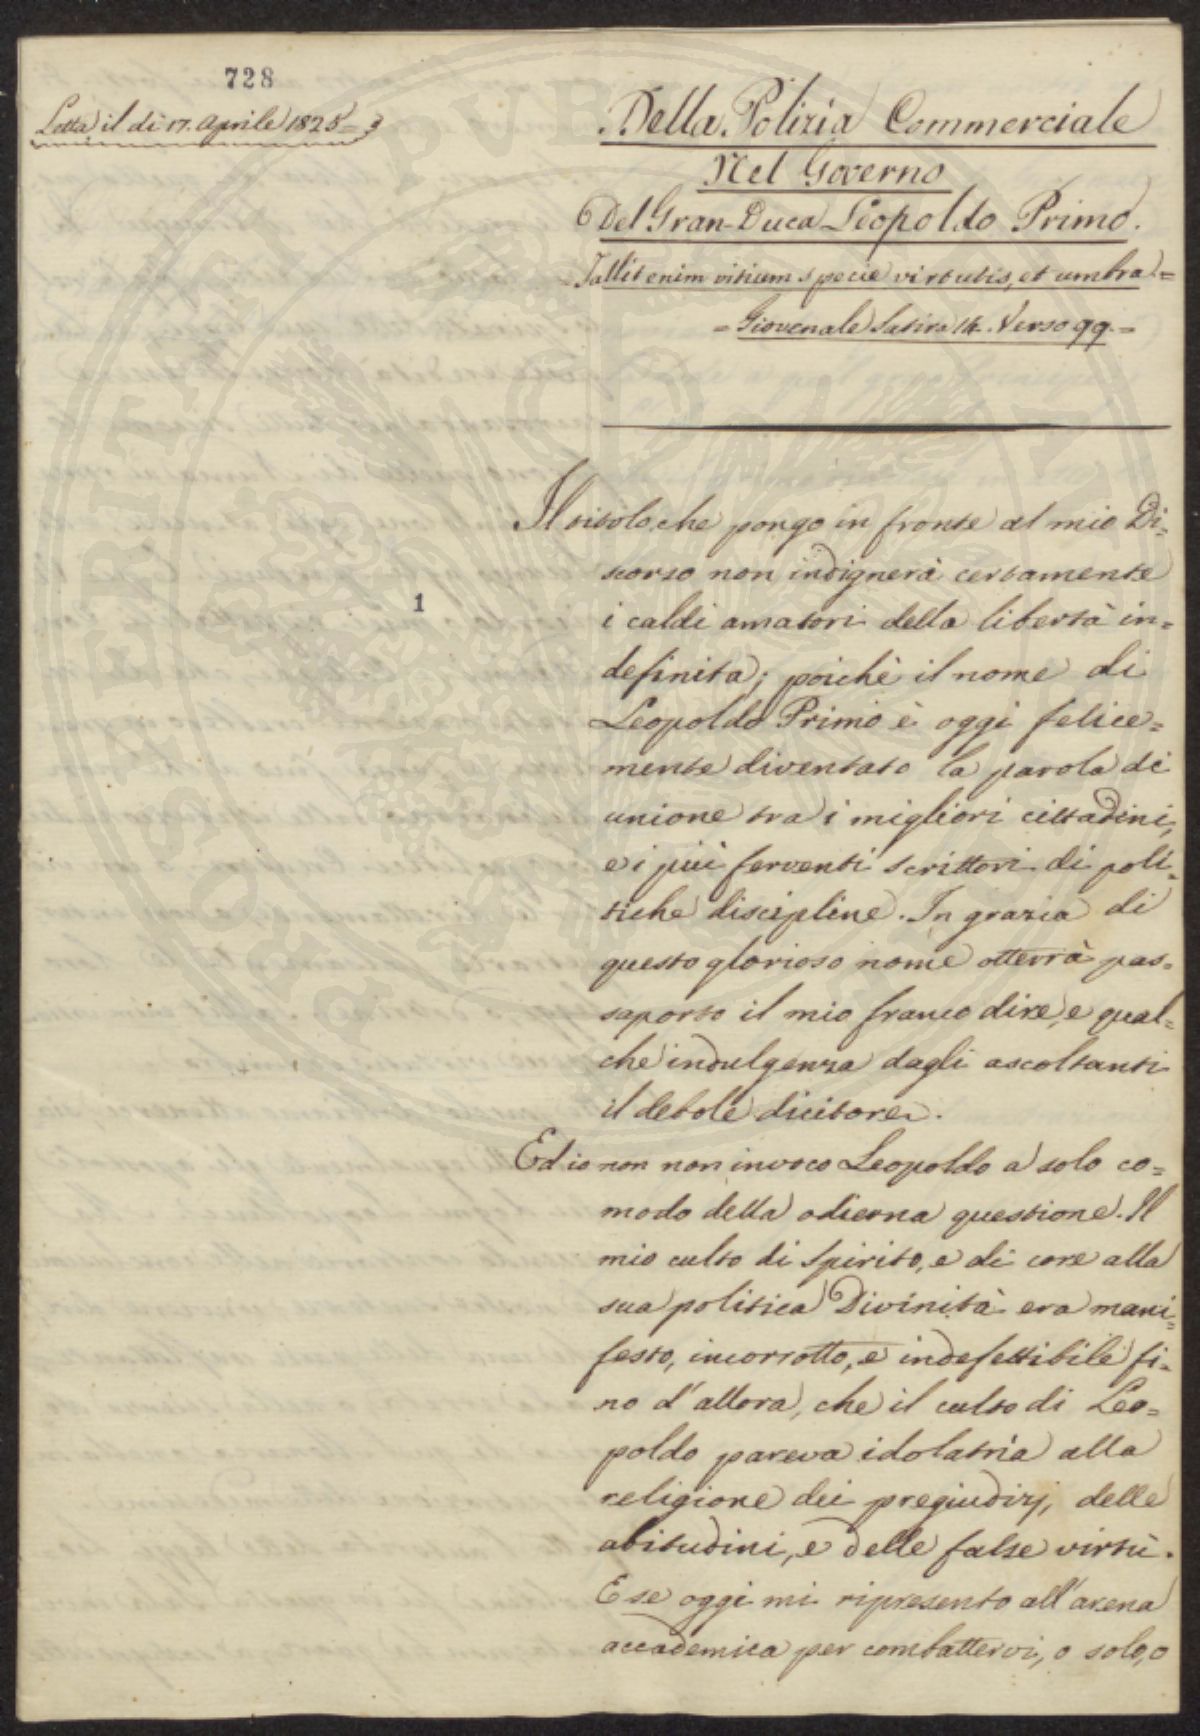 728
Letta il dì 17. Aprile 1825 =
Della Polizia Commerciale
Nel Governo
Del Gran-Duca Leopoldo Primo.
= Fallit enim vitium specie virtutis, et umbra. =
= Giovenale Satira 14. Verso 99. =
Il titolo che pongo in fronte al mio Di=
scorso non indignerà certamente
1
i caldi amatori della libertà in=
definita; poichè il nome di
Leopoldo Primo è oggi felice=
mente diventato la parola di
unione tra i migliori cittadini,
e i più ferventi scrittori di poli=
tiche discipline. In grazia di
questo glorioso nome otterrà pas=
saporto il mio franco dire, e qual=
che indulgenza dagli ascoltanti
il debole dicitore.
Ed io non non invoco Leopoldo a solo co=
modo della odierna questione. Il
mio culto di Spirito, e di core alla
sua politica Divinità era mani=
festo, incorrotto, e indefettibile fi=
no d'allora, che il culto di Leo=
poldo pareva idolatria alla
religione dei pregiudizj, delle
abitudini, e delle false virtù.
E se oggi mi ripresento all'arena
accademica per combattervi, o solo, o